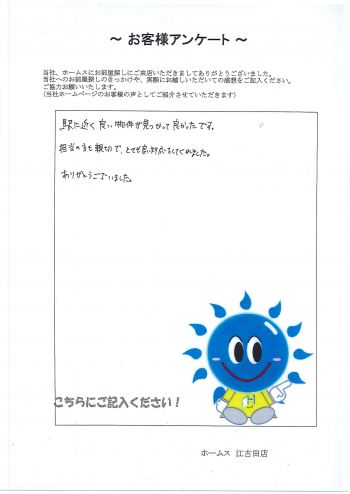 ～ お客様アンケート ～
当社、ホームスにお部屋探しにご来店いただきましてありがとうございました。
当社へのお部屋探しのきっかけや、実際にお越しいただいての感想をご記入ください。
ご協力お願いいたします。
(当社ホームページのお客様の声としてご紹介させていただきます)
駅に近く良い物件が見つかって良かったです。
担当の方も親切で、とても良い対応をしてくれました。
ありがとうございました。
こちらにご記入ください！
ホームス 江古田店